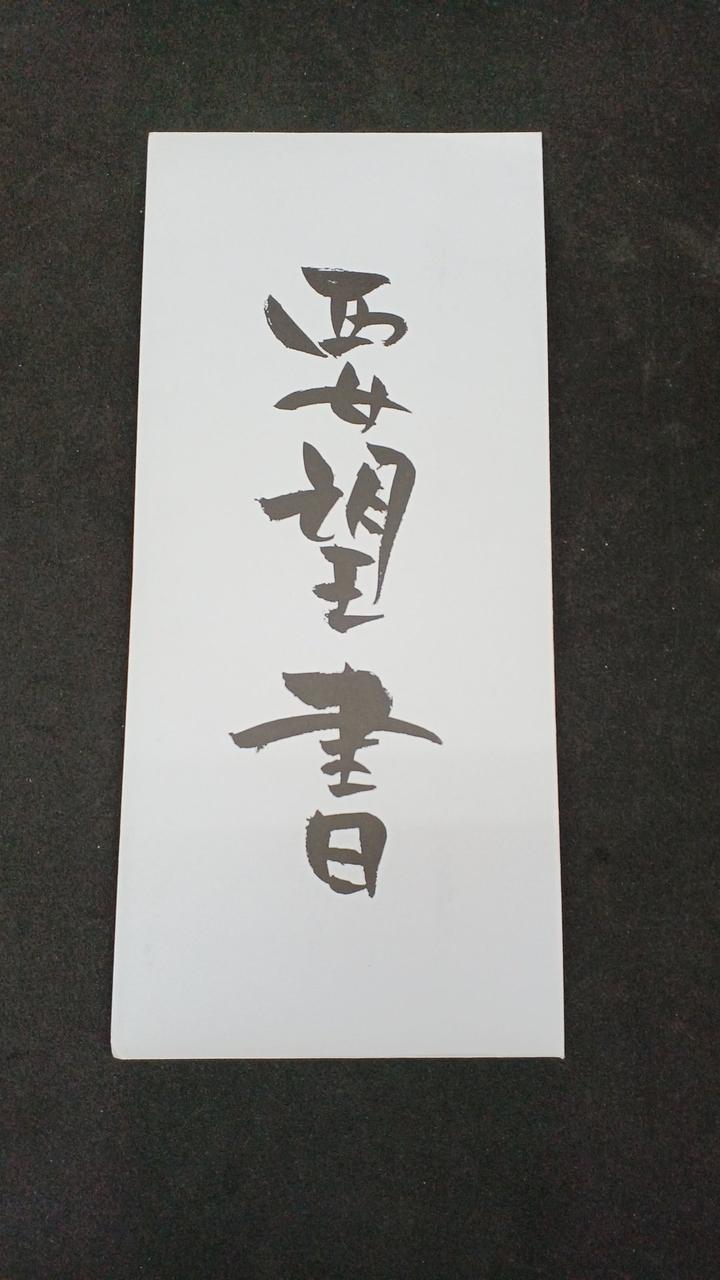 要望書